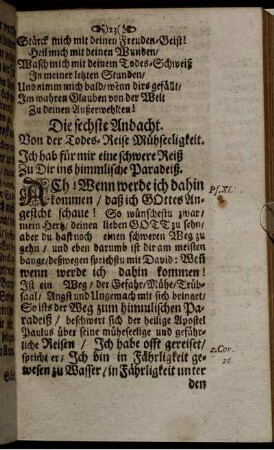 )23(
Stärck mich mit deinen Freuden-Geist!
Heil mich mit deinen Wunden/
Wasch mich mit deinem Todes-Schweiß
In meiner letzten Stunden/
Und nimm mich bald/ wenn dirs gefällt/
Im wahren Glauben von der Welt
Zu deinen Außerwehlten!
Die sechste Andacht.
Von der Todes-Reise Mühseeligkeit.
Ich hab für mir eine schwere Reiß
Zu Dir ins himmlische Paradeiß.
ACh! Wenn werde ich dahin
kommen/ daß ich GOttes An-
gesicht schaue! So wünschestu zwar/
mein Hertz/ deinen lieben GOTT zu sehn/
aber du hast noch einen schweren Weg zu
gehn/ und eben darumb ist dir am meisten
bange/ deßwegen sprichstu mit David: Weñ
wenn werde ich dahin kommen!
Ist ein Weg/ der Gefahr/ Mühe/ Trüb-
saal/ Angst und Ungemach mit sich bringet/
So ists der Weg zum himmlischen Pa-
radeiß/ beschwert sich der heilige Apostel
Paulus über seine mühseelige und gefähr-
liche Reisen/ Ich habe offt gereiset/
spricht er/ Ich bin in Fährligkeit ge-
wesen zu Wasser/ in Fährligkeit unter
den
Ps. XL.
2. Cor.